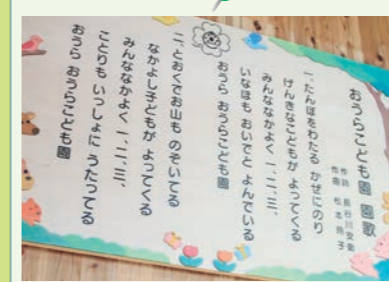 おうらこども園 園歌
作詩 長谷川安衛
作曲 松本玲子
一、たんぼをわたる かぜにのり
げんきなこどもが よってくる
みんななかよく 一、二、三、
いなほも おいでと よんでいる
おうら おうらこども園
二、とおくでお山も のぞいてる
なかよし子どもが よってくる
みんななかよく 一、二、三、
ことりも いっしょに うたってる
おうら おうらこども園